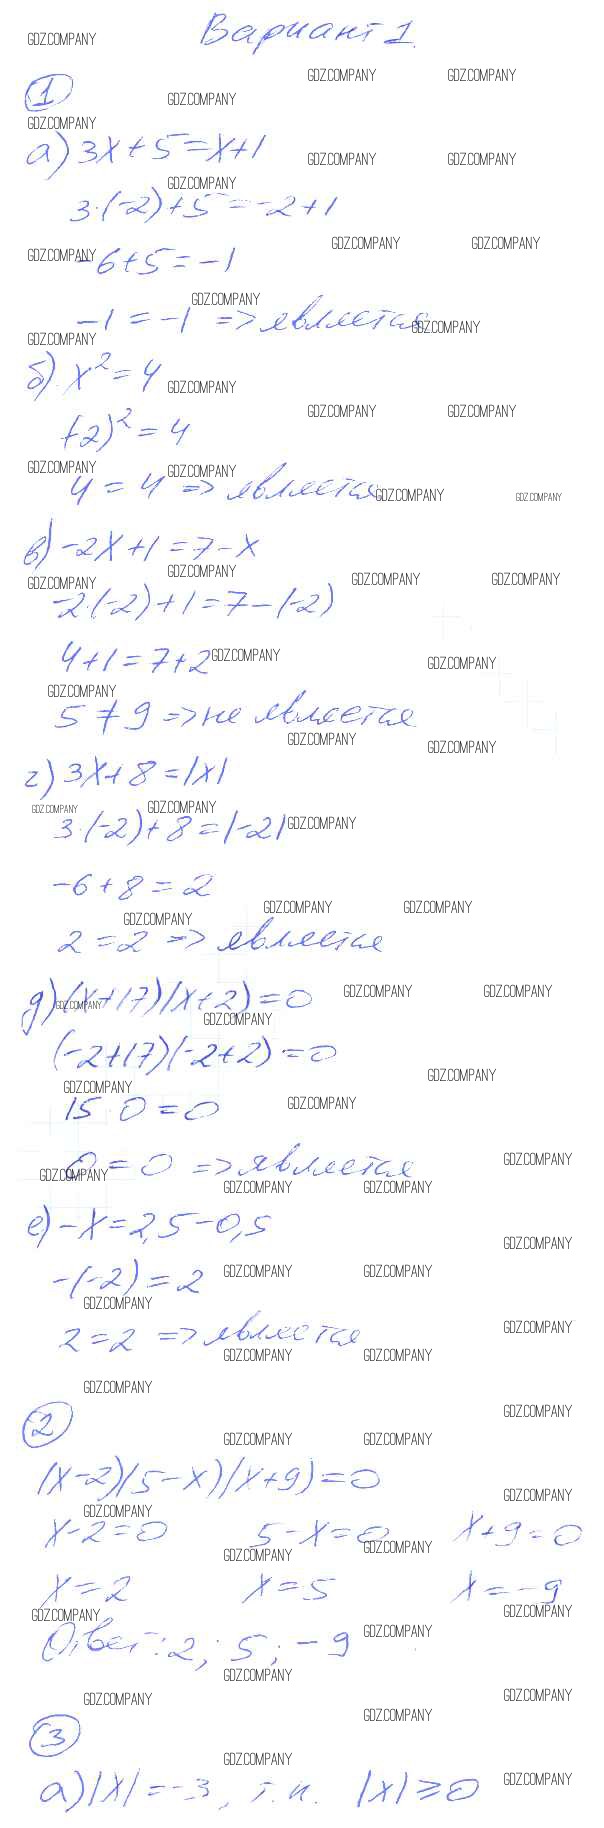 Вариант 1.
1
а) 3x+5=x+1
3·(-2)+5=-2+1
-6+5=-1
-1=-1 => является
б) x²=4
(-2)²=4
4=4 => является
в) -2x+1=7-x
-2·(-2)+1=7-(-2)
4+1=7+2
5≠9 => не является
г) 3x+8=|x|
3·(-2)+8=|-2|
-6+8=2
2=2 => является
д) (x+17)(x+2)=0
(-2+17)(-2+2)=0
15·0=0
0=0 => является
е) -x=2,5-0,5
-(-2)=2
2=2 => является
2
(x-2)(5-x)(x+9)=0
x-2=0 5-x=0 x+9=0
x=2 x=5 x=-9
Ответ: 2; 5; -9
3
а) |x|=-3, т.к. |x|≥0
GDZ.COMPANY